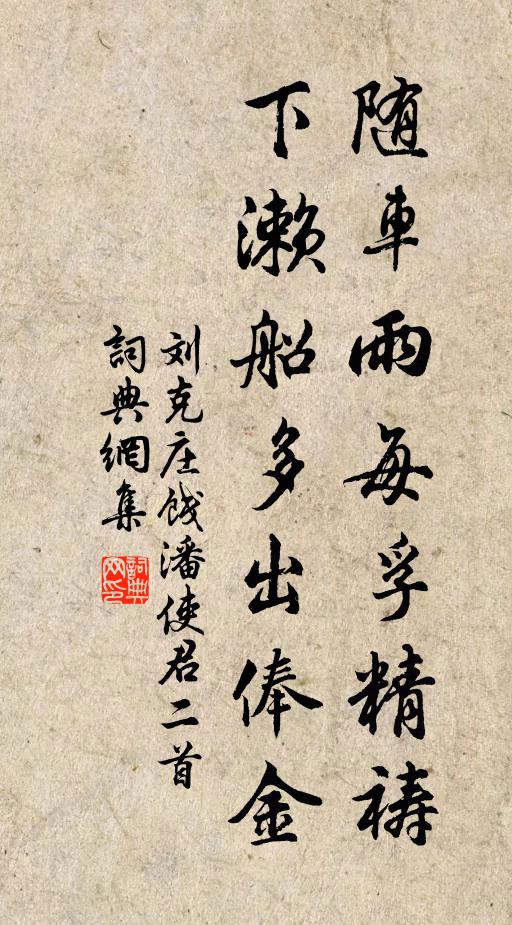 随車雨每孚精禱
下瀨船多出俸金
刘克庄餞潘使君二首
詞典網集
詞典网印